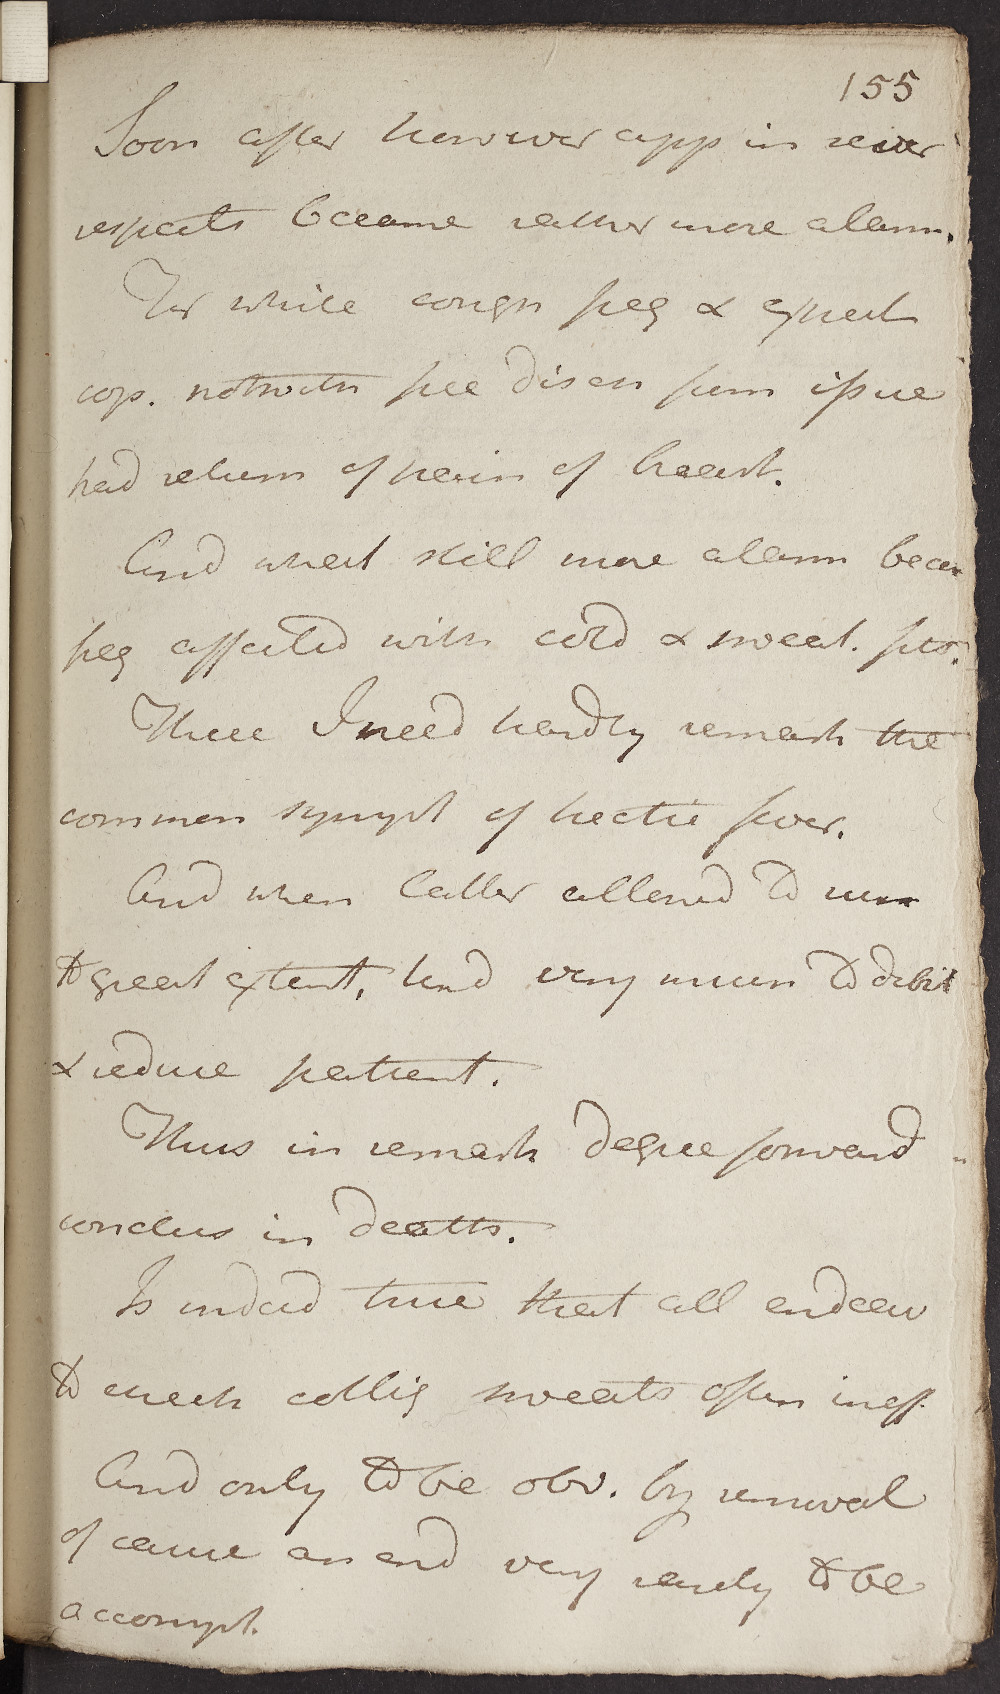 155
Soon after however app in sever
respects became rather more alarm.
For while cough freq & expect
cop. notwith free disch from issue
had return of pain of breast.
And what still more alarm becam
freq affected with cold & sweat. fits.
These I need hardly remark the
common sympt of hectic fever.
And when latter allowed to run
to great extent, tend very much to debilit
& reduce patient.
Thus in remark degree forward
conclus in death.
Is indeed true that all endeav
to check collig sweats often ineff.
And only to be obv. by removal
of cause an end very rarely to be
accompt.